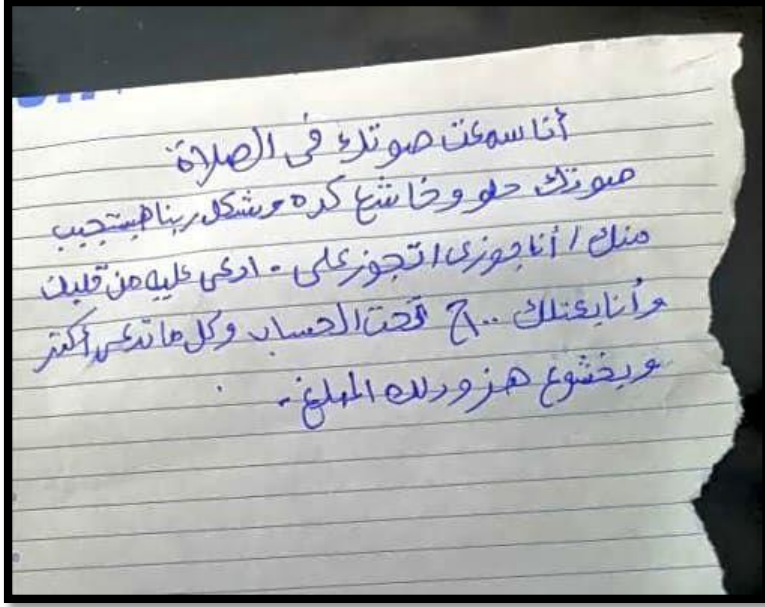 أنا سمعت صوتك في الصلاة
صوتك حلو وخاشع كده وشكل ربنا هيستجيب
منك / أنا جوزى اتجوز على - ادعى عليه من قلبك
وأنا بعتلك ١٠٠ج تحت الحساب وكل ما تدعى أكتر
وبخشوع هزودلك المبلغ -